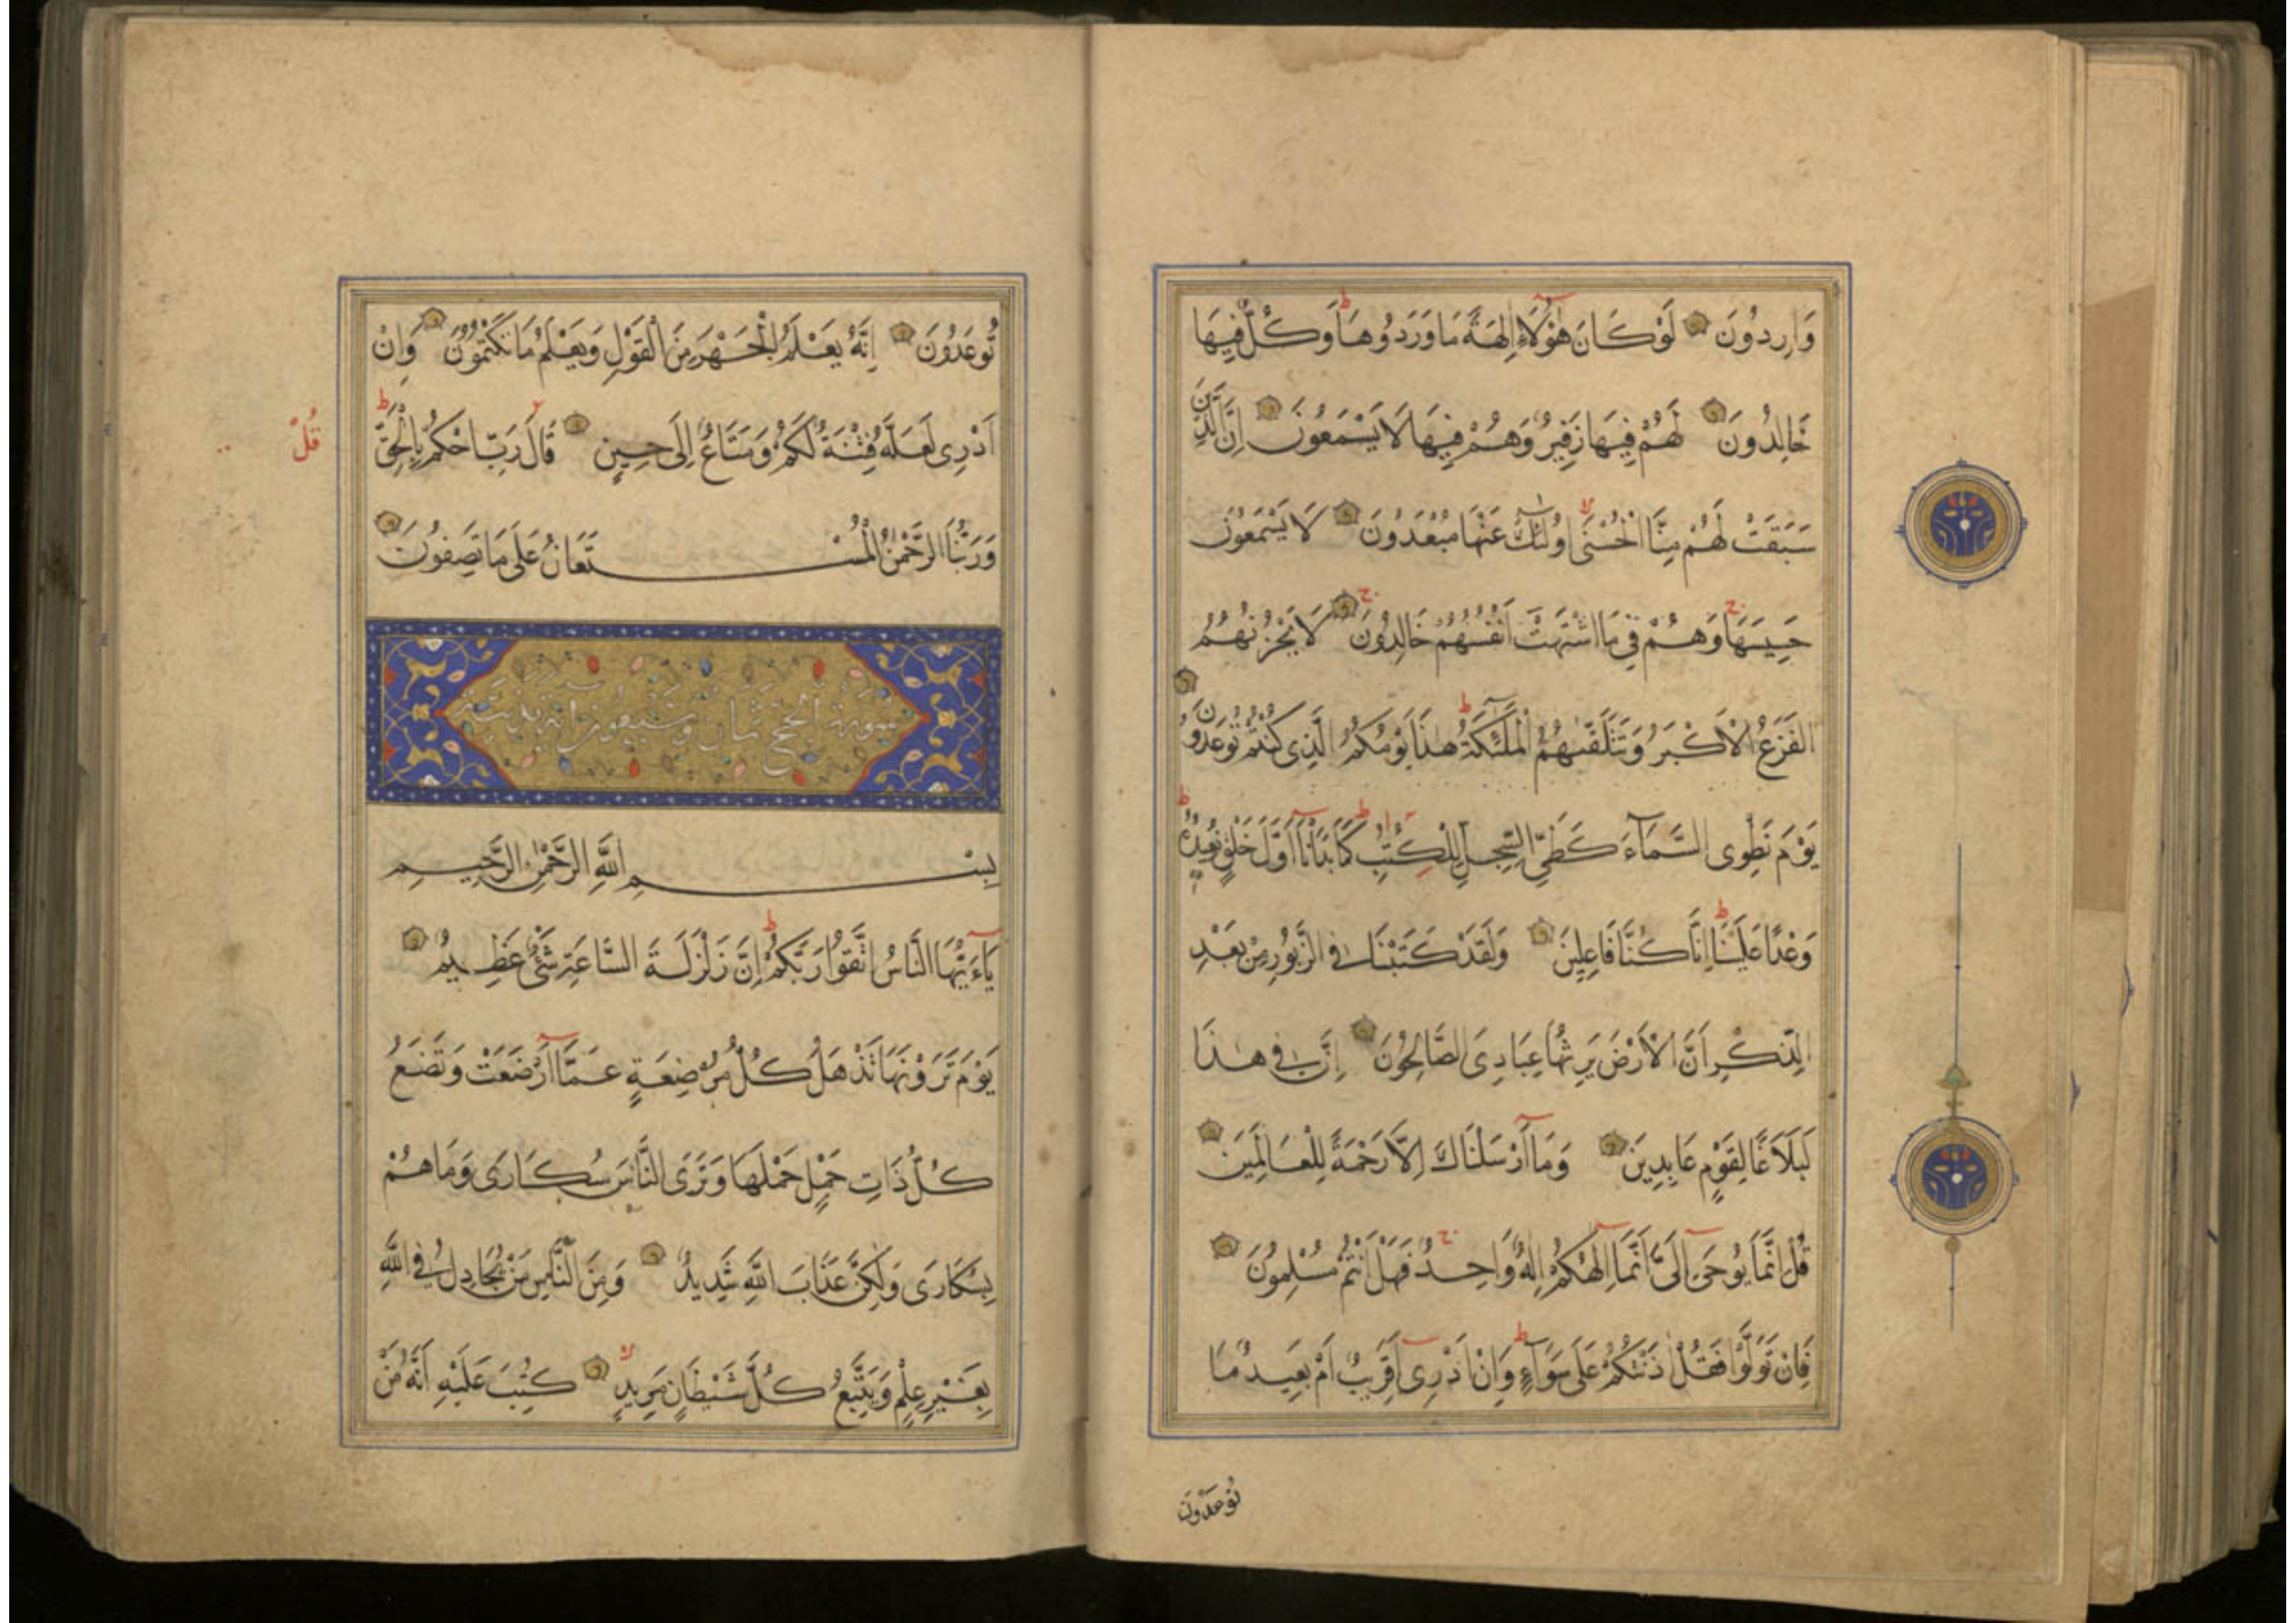 وَارِدُونَ لَوْ كَانَ هٰؤُلَاءِ اٰلِهَةً مَا وَرَدُوهَا وَكُلٌّ فِيهَا
خَالِدُونَ لَهُمْ فِيهَا زَفِيرٌ وَهُمْ فِيهَا لَا يَسْمَعُونَ اِنَّ الَّذِينَ
سَبَقَتْ لَهُمْ مِنَّا الْحُسْنَى اُولٰئِكَ عَنْهَا مُبْعَدُونَ لَا يَسْمَعُونَ
حَسِيسَهَا وَهُمْ فِي مَا اشْتَهَتْ اَنْفُسُهُمْ خَالِدُونَ لَا يَحْزُنُهُمُ
الْفَزَعُ الْاَكْبَرُ وَتَتَلَقّٰىهُمُ الْمَلٰئِكَةُ هٰذَا يَوْمُكُمُ الَّذِي كُنْتُمْ تُوعَدُونَ
يَوْمَ نَطْوِى السَّمَآءَ كَطَيِّ السِّجِلِّ لِلْكُتُبِ كَمَا بَدَاْنَا اَوَّلَ خَلْقٍ نُعِيدُهُ
وَعْدًا عَلَيْنَا اِنَّا كُنَّا فَاعِلِينَ وَلَقَدْ كَتَبْنَا فِي الزَّبُورِ مِنْ بَعْدِ
الذِّكْرِ اَنَّ الْاَرْضَ يَرِثُهَا عِبَادِىَ الصَّالِحُونَ اِنَّ فِي هٰذَا
لَبَلَاغًا لِقَوْمٍ عَابِدِينَ وَمَا اَرْسَلْنَاكَ اِلَّا رَحْمَةً لِلْعَالَمِينَ
قُلْ اِنَّمَا يُوحَى اِلَىَّ اَنَّمَا اِلٰهُكُمْ اِلٰهٌ وَاحِدٌ فَهَلْ اَنْتُمْ مُسْلِمُونَ
فَاِنْ تَوَلَّوْا فَقُلْ اٰذَنْتُكُمْ عَلَى سَوَآءٍ وَاِنْ اَدْرِى اَقَرِيبٌ اَمْ بَعِيدٌ مَا
تُوعَدُونَ
تُوعَدُونَ اِنَّهُ يَعْلَمُ الْجَهْرَ مِنَ الْقَوْلِ وَيَعْلَمُ مَا تَكْتُمُونَ وَاِنْ
اَدْرِى لَعَلَّهُ فِتْنَةٌ لَكُمْ وَمَتَاعٌ اِلَى حِينٍ قَالَ رَبِّ احْكُمْ بِالْحَقِّ
قُلْ
وَرَبُّنَا الرَّحْمٰنُ الْمُسْتَعَانُ عَلَى مَا تَصِفُونَ
سورة الحج ثمان وسبعون اية مدنية
بِسْمِ اللَّهِ الرَّحْمٰنِ الرَّحِيمِ
يَآءَيُّهَا النَّاسُ اتَّقُوا رَبَّكُمْ اِنَّ زَلْزَلَةَ السَّاعَةِ شَيْءٌ عَظِيمٌ
يَوْمَ تَرَوْنَهَا تَذْهَلُ كُلُّ مُرْضِعَةٍ عَمَّا اَرْضَعَتْ وَتَضَعُ
كُلُّ ذَاتِ حَمْلٍ حَمْلَهَا وَتَرَى النَّاسَ سُكَارَى وَمَا هُمْ
بِسُكَارَى وَلٰكِنَّ عَذَابَ اللَّهِ شَدِيدٌ وَمِنَ النَّاسِ مَنْ يُجَادِلُ فِي اللَّهِ
بِغَيْرِ عِلْمٍ وَيَتَّبِعُ كُلَّ شَيْطَانٍ مَرِيدٍ كُتِبَ عَلَيْهِ اَنَّهُ مَنْ